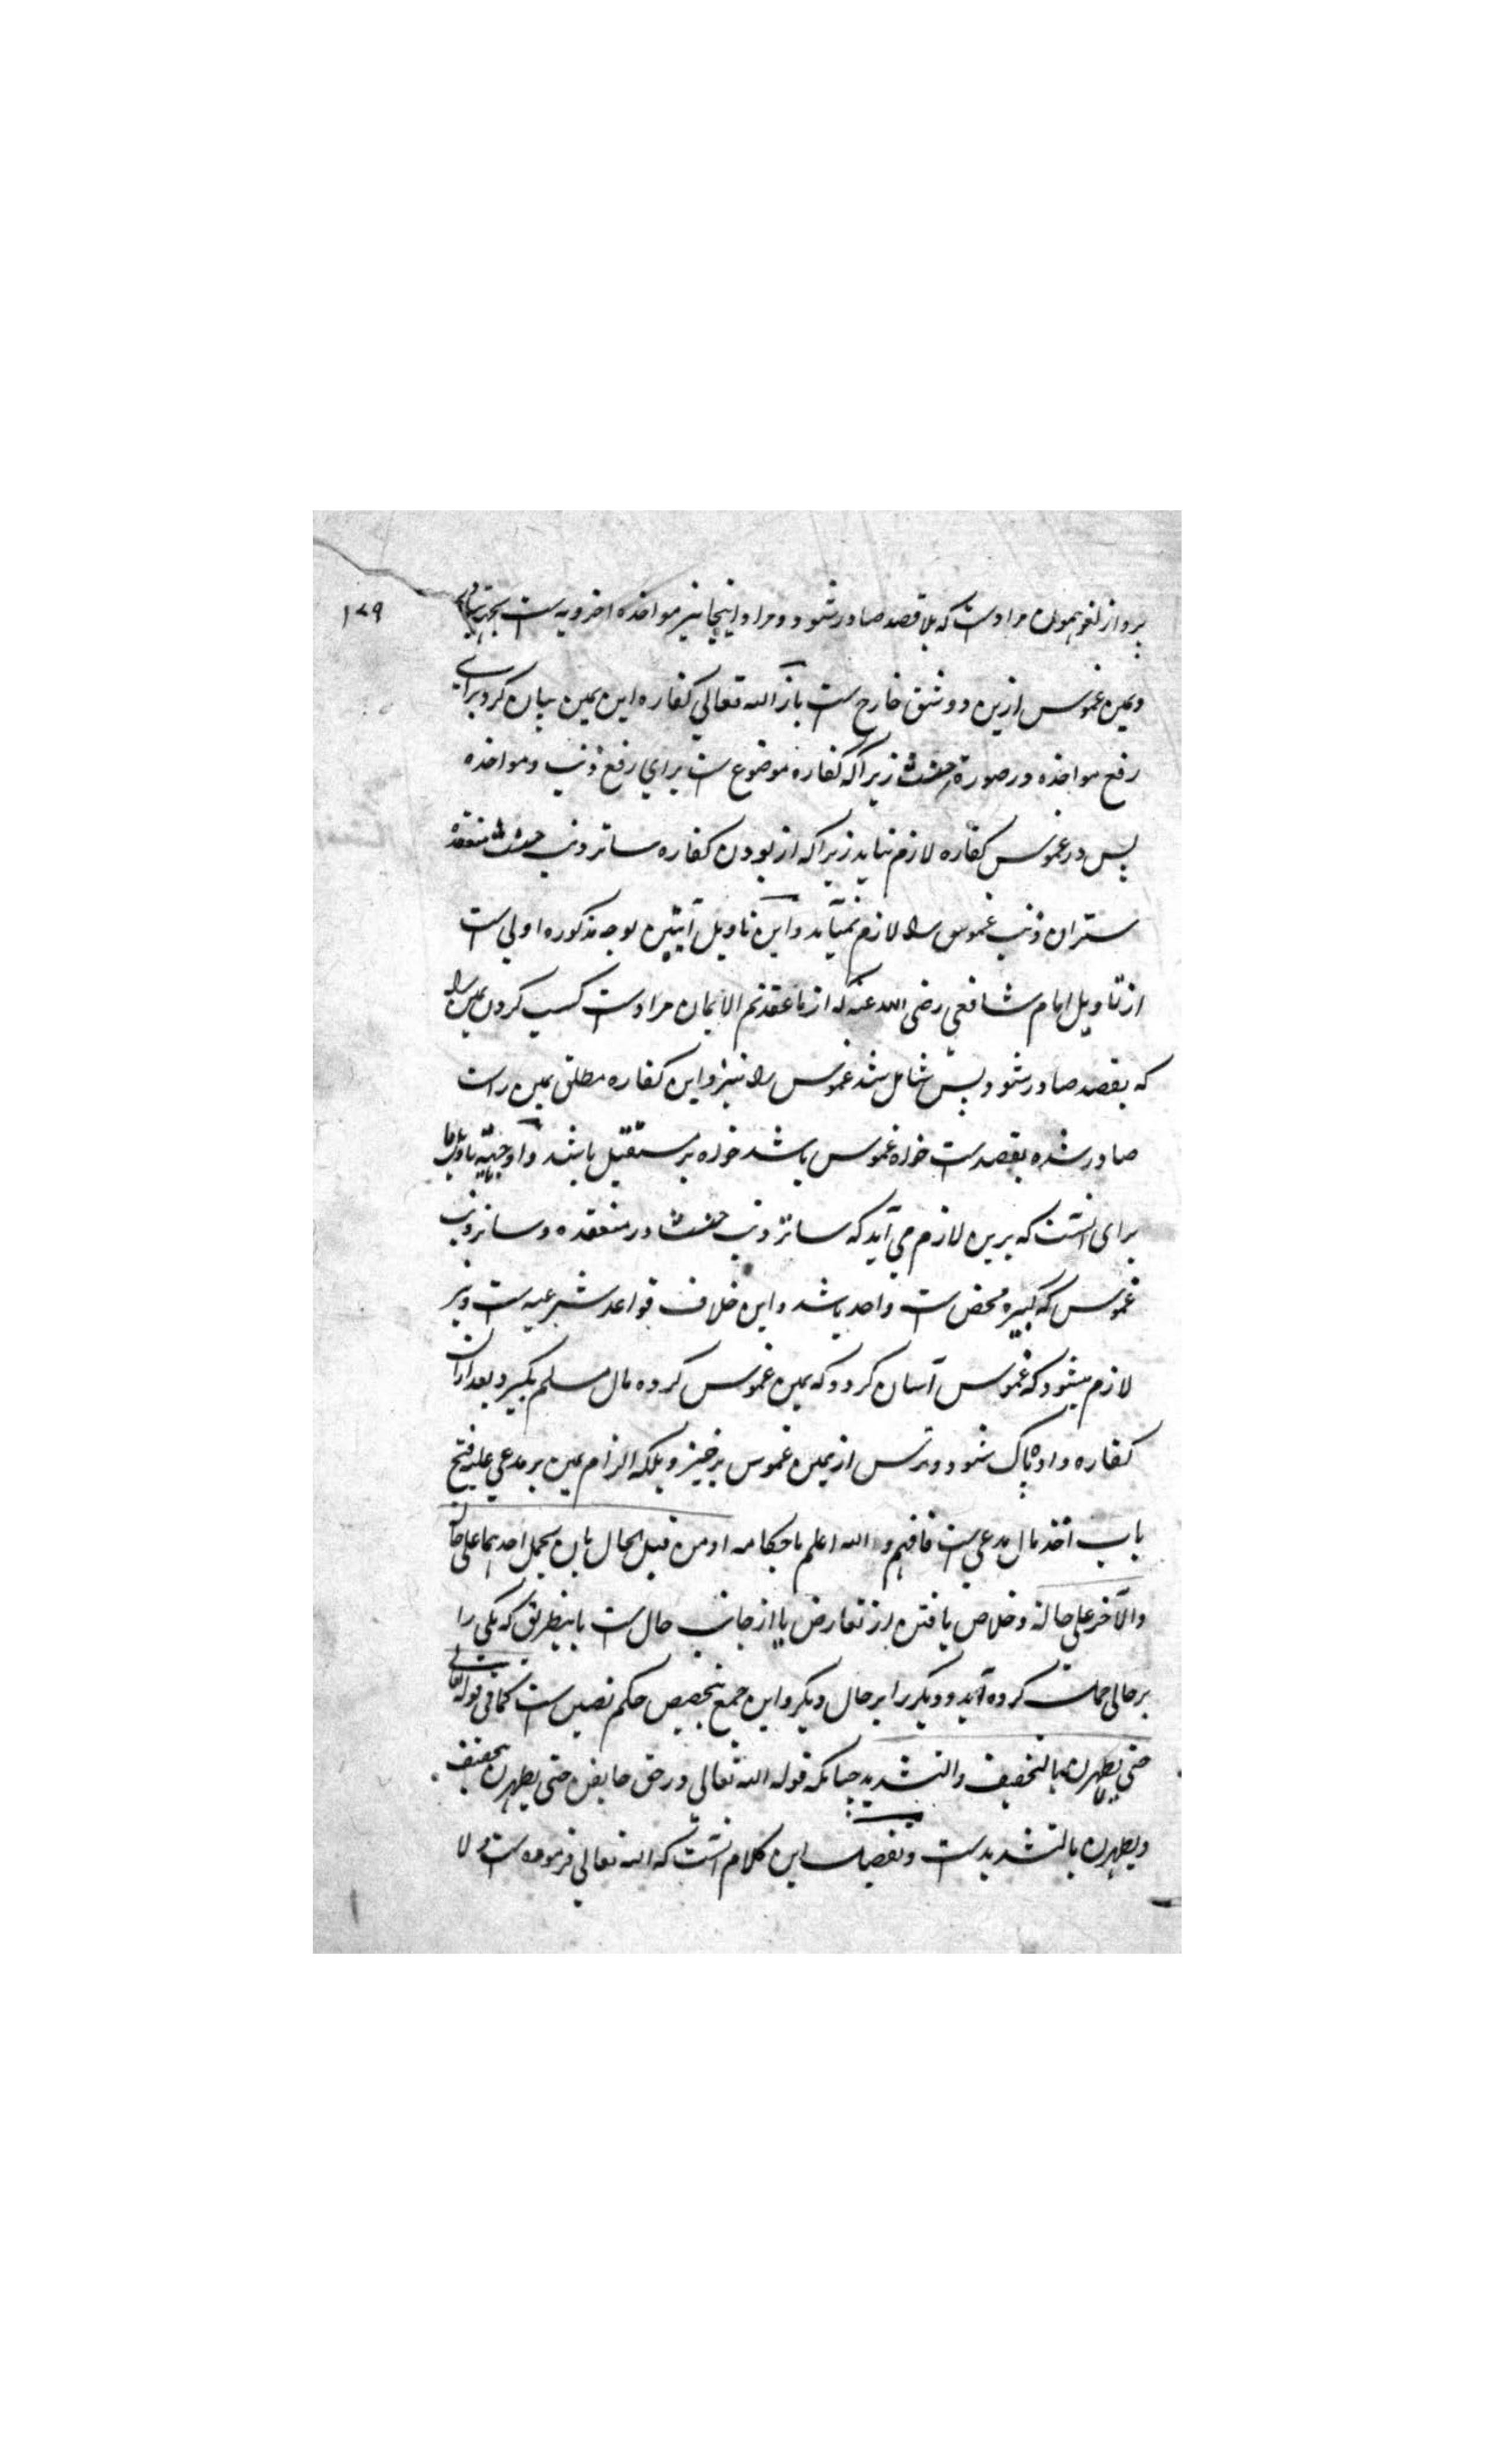 ۱۷۹
برو از لغو همون مرادست که بلا قصد صادر شود و مراد اینجا نیز مواخذه اخرویه است
و یمین غموس ازین دو شق خارج ست باز الله تعالی کفاره این یمین بیان کرد برای
رفع مواخذه در صورة حنث زیراکه کفاره موضوع ست برای رفع ذنب و مواخذه
پس در غموس کفاره لازم نیاید زیراکه از بودن کفاره ساتر ذنب حنث منعقده
ستر آن ذنب غموس را لازم نمیآید و این تاویل آیتین بوجه مذکوره اولی ست
از تاویل امام شافعی رضی الله عنه که از ما عقدتم الایمان مرادست کسب کردن یمین را
که بقصد صادر شود پس شامل شد غموس را نیز و این کفاره مطلق یمین راست
صادر شده بقصد ست خواه غموس باشد خواه بر مستقبل باشد و اوجبیة تاویل ما
برای آنست که برین لازم می آید که ساتر ذنب حنث در منعقده و ساتر ذنب
غموس که کبیره محض ست واحد باشد و این خلاف قواعد شرعیه ست و نیز
لازم میشود که غموس آسان کردد که یمین غموس کرده مال مسلم بگیرد بعد ازان
کفاره داده پاک شود و ترس از یمین غموس برخیزد بلکه الزام یمین بر مدعی علیه فتح
باب اخذ مال مدعی ست فافهم و الله اعلم باحکامه او من قبل الحال بان یحمل احدهما علی حالة
والآخر علی حالة و خلاص یافتن از تعارض یا از جانب حال ست باینطریق که یکی را
بر حالی حمل کرده آید و دیکر را بر حال دیکر و این جمع بتخصیص حکم نصین ست کما فی قوله تعالی
حتی یطهرن بالتخفیف والتشدید چنانکه قوله الله تعالی در حق حایض حتی یطهرن بتخفیف
و یطهرن بالتشدید ست و تفصیل این کلام آنست که الله تعالی فرموده ست و لا